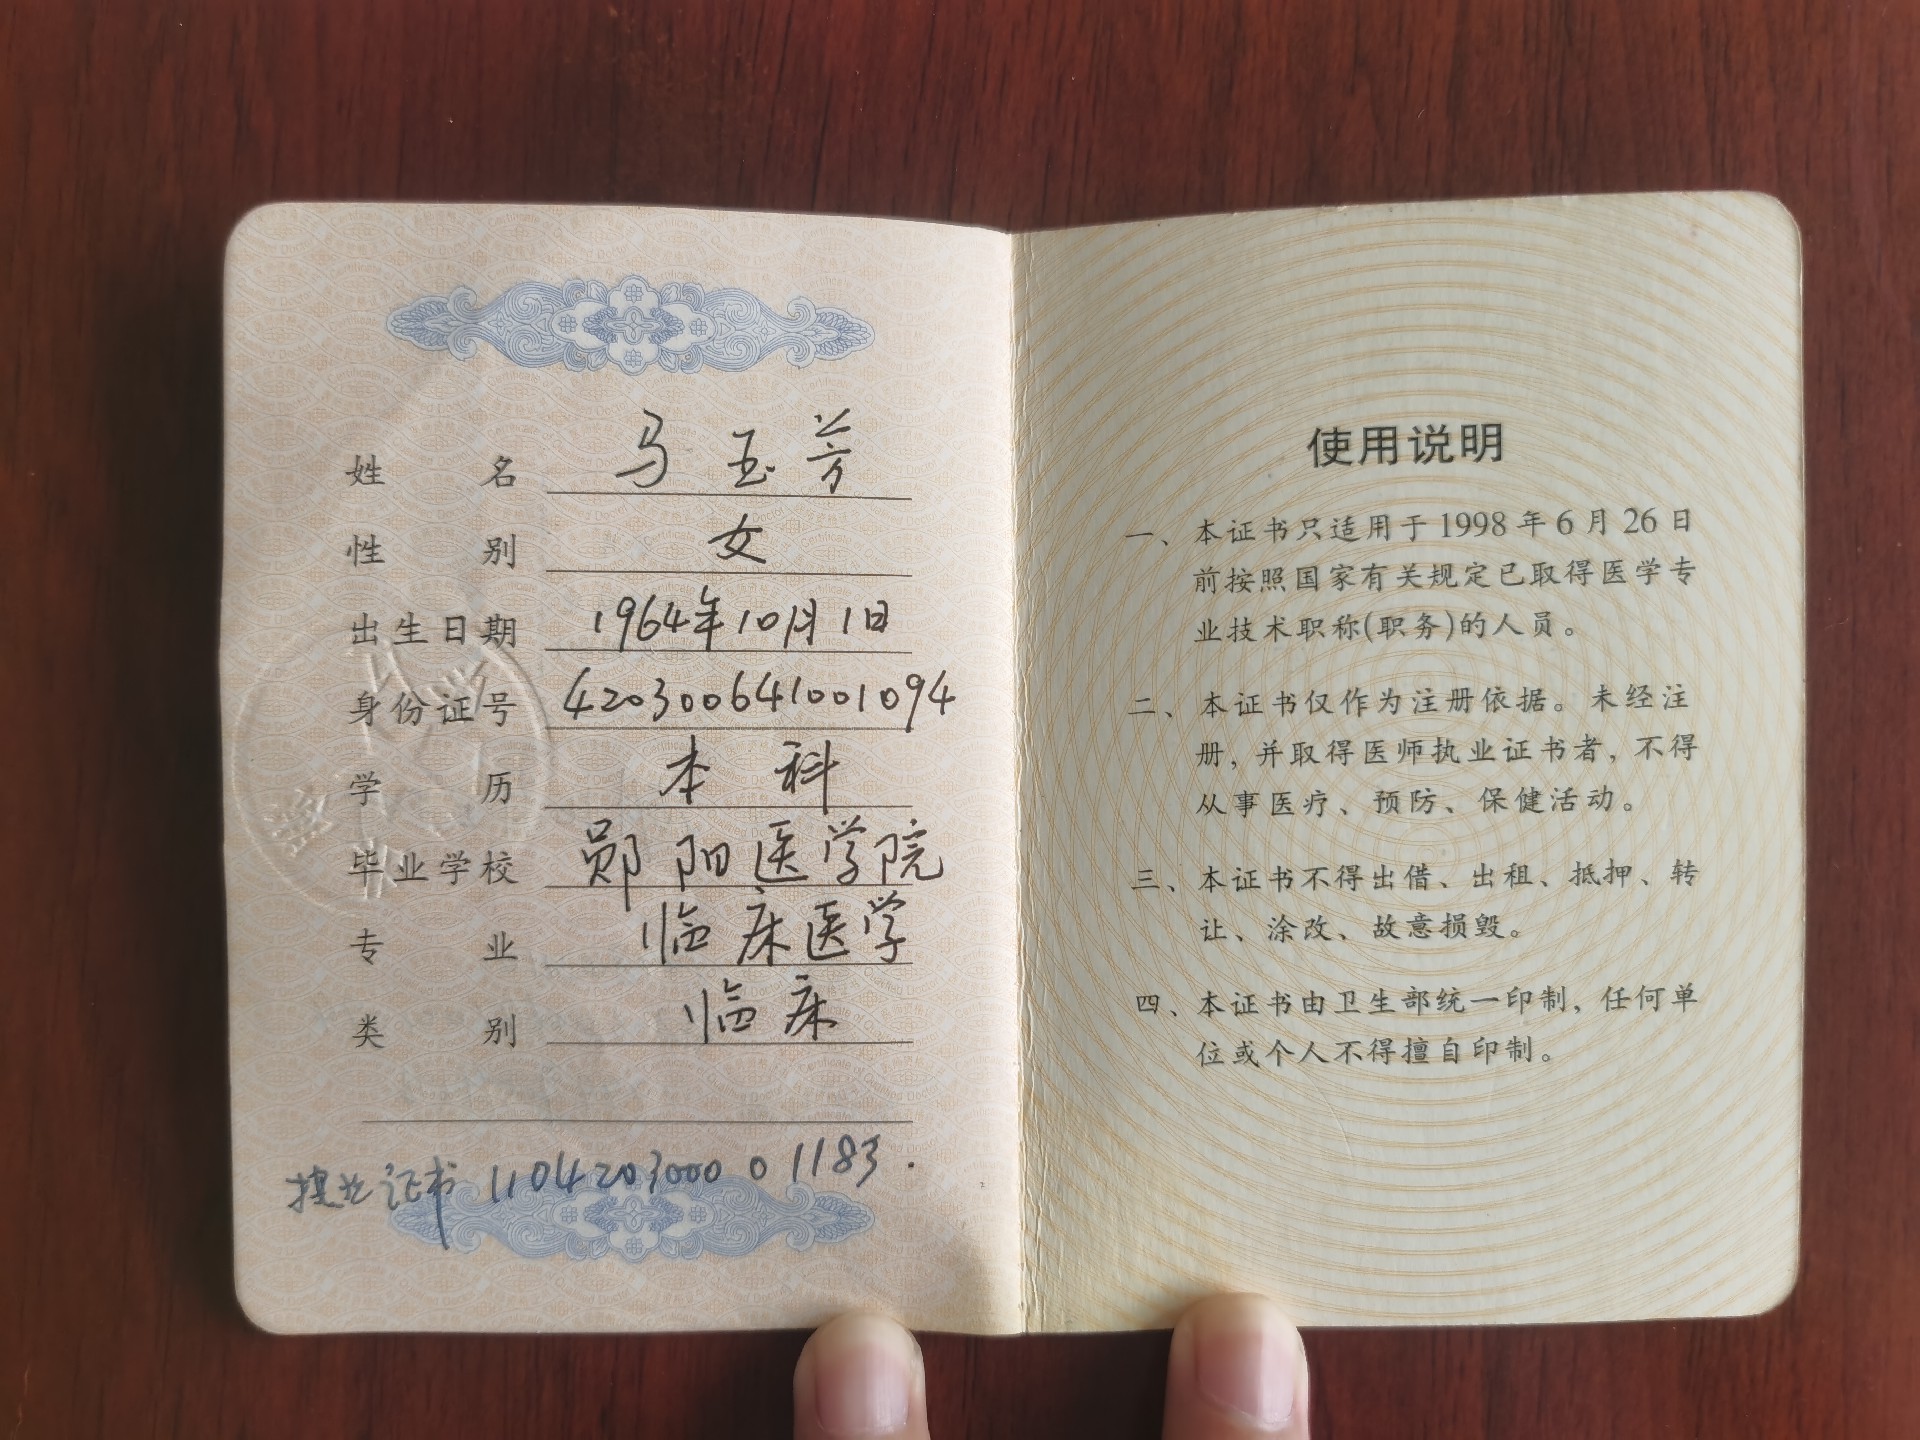 姓名 马玉芳
性别 女
出生日期 1964年10月1日
身份证号 420300641001094
学历 本科
毕业学校 郧阳医学院
专业 临床医学
类别 临床
执业证书 110420300001183.
使用说明
一、本证书只适用于1998年6月26日
前按照国家有关规定已取得医学专
业技术职称(职务)的人员。
二、本证书仅作为注册依据。未经注
册，并取得医师执业证书者，不得
从事医疗、预防、保健活动。
三、本证书不得出借、出租、抵押、转
让、涂改、故意损毁。
四、本证书由卫生部统一印制，任何单
位或个人不得擅自印制。